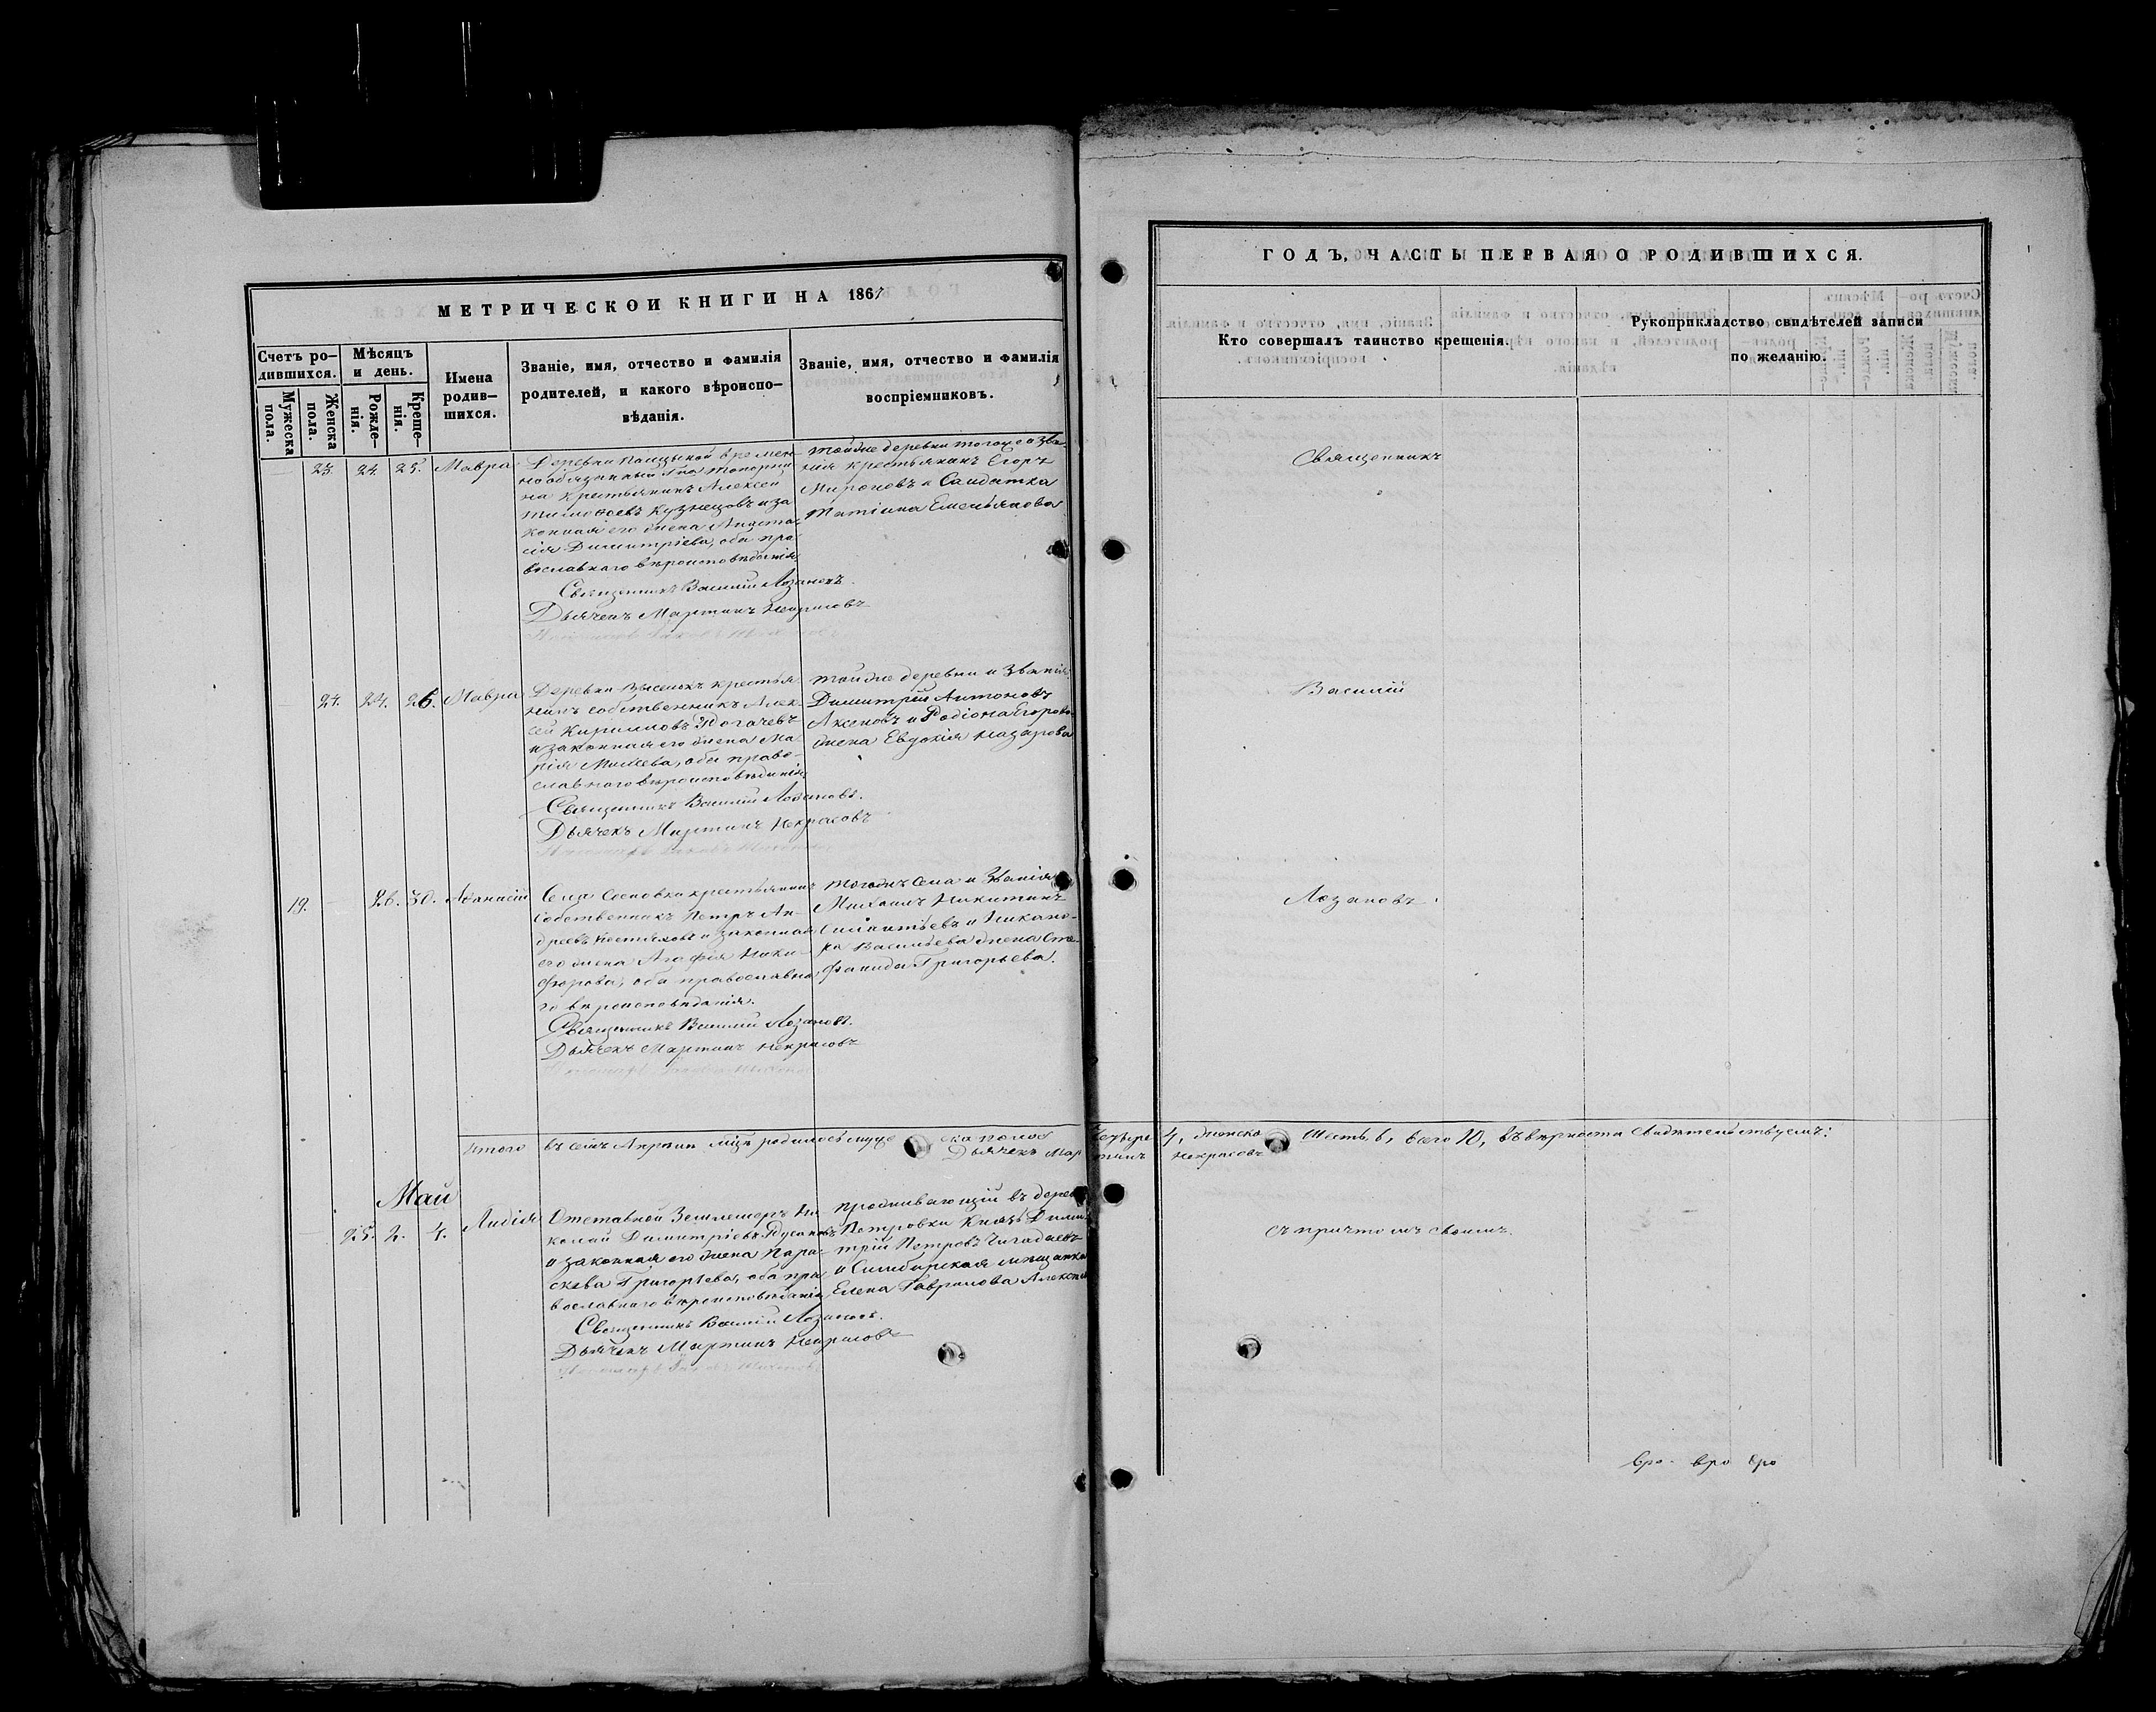 МЕТРИЧЕСКОЙ КНИГИ НА 1867
Счетъ ро-
дившихся.
Мужеска пола.
Женска пола.
Мѣсяцъ
и день.
Рожде-
нія.
Креще-
нія.
Имена
родив-
шихся.
Званіе, имя, отчество и фамилія
родителей, и какого вѣроиспо-
вѣданія.
Званіе, имя, отчество и фамилія
воспріемниковъ.
23. 24. 25. Мавра
Деревни времен
но обязанный
на крестьянинъ Алексей
Тимофеевъ Кузнецовъ и за
конная его жена Анаста
сія Димитріева, оба пра
вославнаго вѣроисповѣданія
Священникъ Василій Лозановъ.
Дьячекъ Мартинъ Некрасовъ
тойже деревни тогоже зва
нія крестьянинъ Егоръ
Мироновъ и Солдатка
Татіана Емельянова
24. 24. 26. Мавра
Деревни Выселокъ крестья
нинъ собственникъ Алек
сей Кириловъ
и законная его жена Ма
рія оба право-
славнаго вѣроисповѣданія
Священникъ Василій Лозановъ.
Дьячекъ Мартинъ Некрасовъ
тойже деревни и званія
Димитрій Антоновъ
Аксеновъ и Родіона Егорова
жена Евдокія Назарова
19. 28. 30. Афанасій
Села Сосновки крестьянинъ
Собственникъ Петръ Ан-
дреевъ и законная
его жена Агафія Ники-
форова, оба православна
го вѣроисповѣданія.
Священникъ Василій Лозановъ.
Дьячекъ Мартинъ Некрасовъ
тогожъ села и званія
Михаилъ Никитинъ
и Никано-
ра Васильева жена Сте-
фанида Григорьева.
Итого въ семъ Апрѣлѣ мцѣ родилось муже ска пола
Дьячекъ Мар
Май
25. 2. 4. Лидія
Отставной Землемеръ Ни
колай Димитріевъ
и законная его жена Пара-
скева Григорьева, оба пра
вославнаго вѣроисповѣданія
Священникъ Василій Лозановъ.
Дьячекъ Мартинъ Некрасовъ
проживающій въ дерев
Петровки Князь Дими
трій Петровъ Чегодаевъ
и Симбирская мѣщанка
Елена Гаврилова
ГОДЪ, ЧАСТЬ ПЕРВАЯ О РОДИВШИХСЯ.
Кто совершалъ таинство крещенія.
Рукоприкладство свидѣтелей записи
по желанію.
Священникъ
Василій
Лозановъ.
четыре 4, женска шесть 6, всего 10, въ вѣрности свидѣтельствуемъ:
тинъ Некрасовъ
съ причтомъ своимъ.